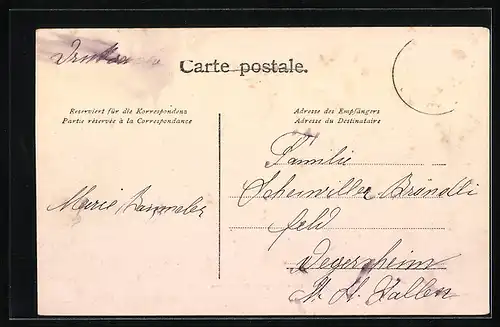 Drucksache
Carte postale.
Reserviert für die Korrespondenz
Partie réservée à la Correspondance
Adresse des Empfängers
Adresse du Destinataire
Familie
Scheiwiller-Brändli
feld
Marie
Degersheim
Kt. St. Gallen